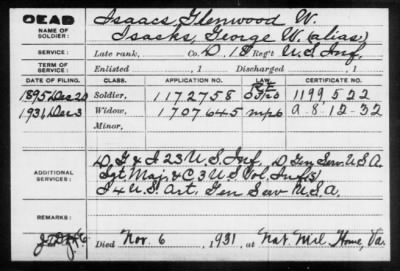 DEAD
NAME OF SOLDIER:
Isaacs, Glenwood W.
Isacks, George W. (alias)
SERVICE:
Late rank, Co. D, 18 Reg't U.S. Inf.
TERM OF SERVICE:
Enlisted , 1 Discharged , 1
DATE OF FILING. CLASS. APPLICATION NO. LAW. CERTIFICATE NO.
1895 Dec 20 Soldier, 1172758 1199522
1931 Dec 3 Widow, 1707645 a. 8-12-32
Minor,
ADDITIONAL SERVICES:
D, G & I 23 U.S. Inf, D Gen Serv. U.S.A.
Sgt. Maj. & C 3 U S Vol. Inf (s)
I 4 U.S. Art. Gen Serv U.S.A.
REMARKS:
Died Nov. 6, 1931, at Nat. Mil. Home, Va.